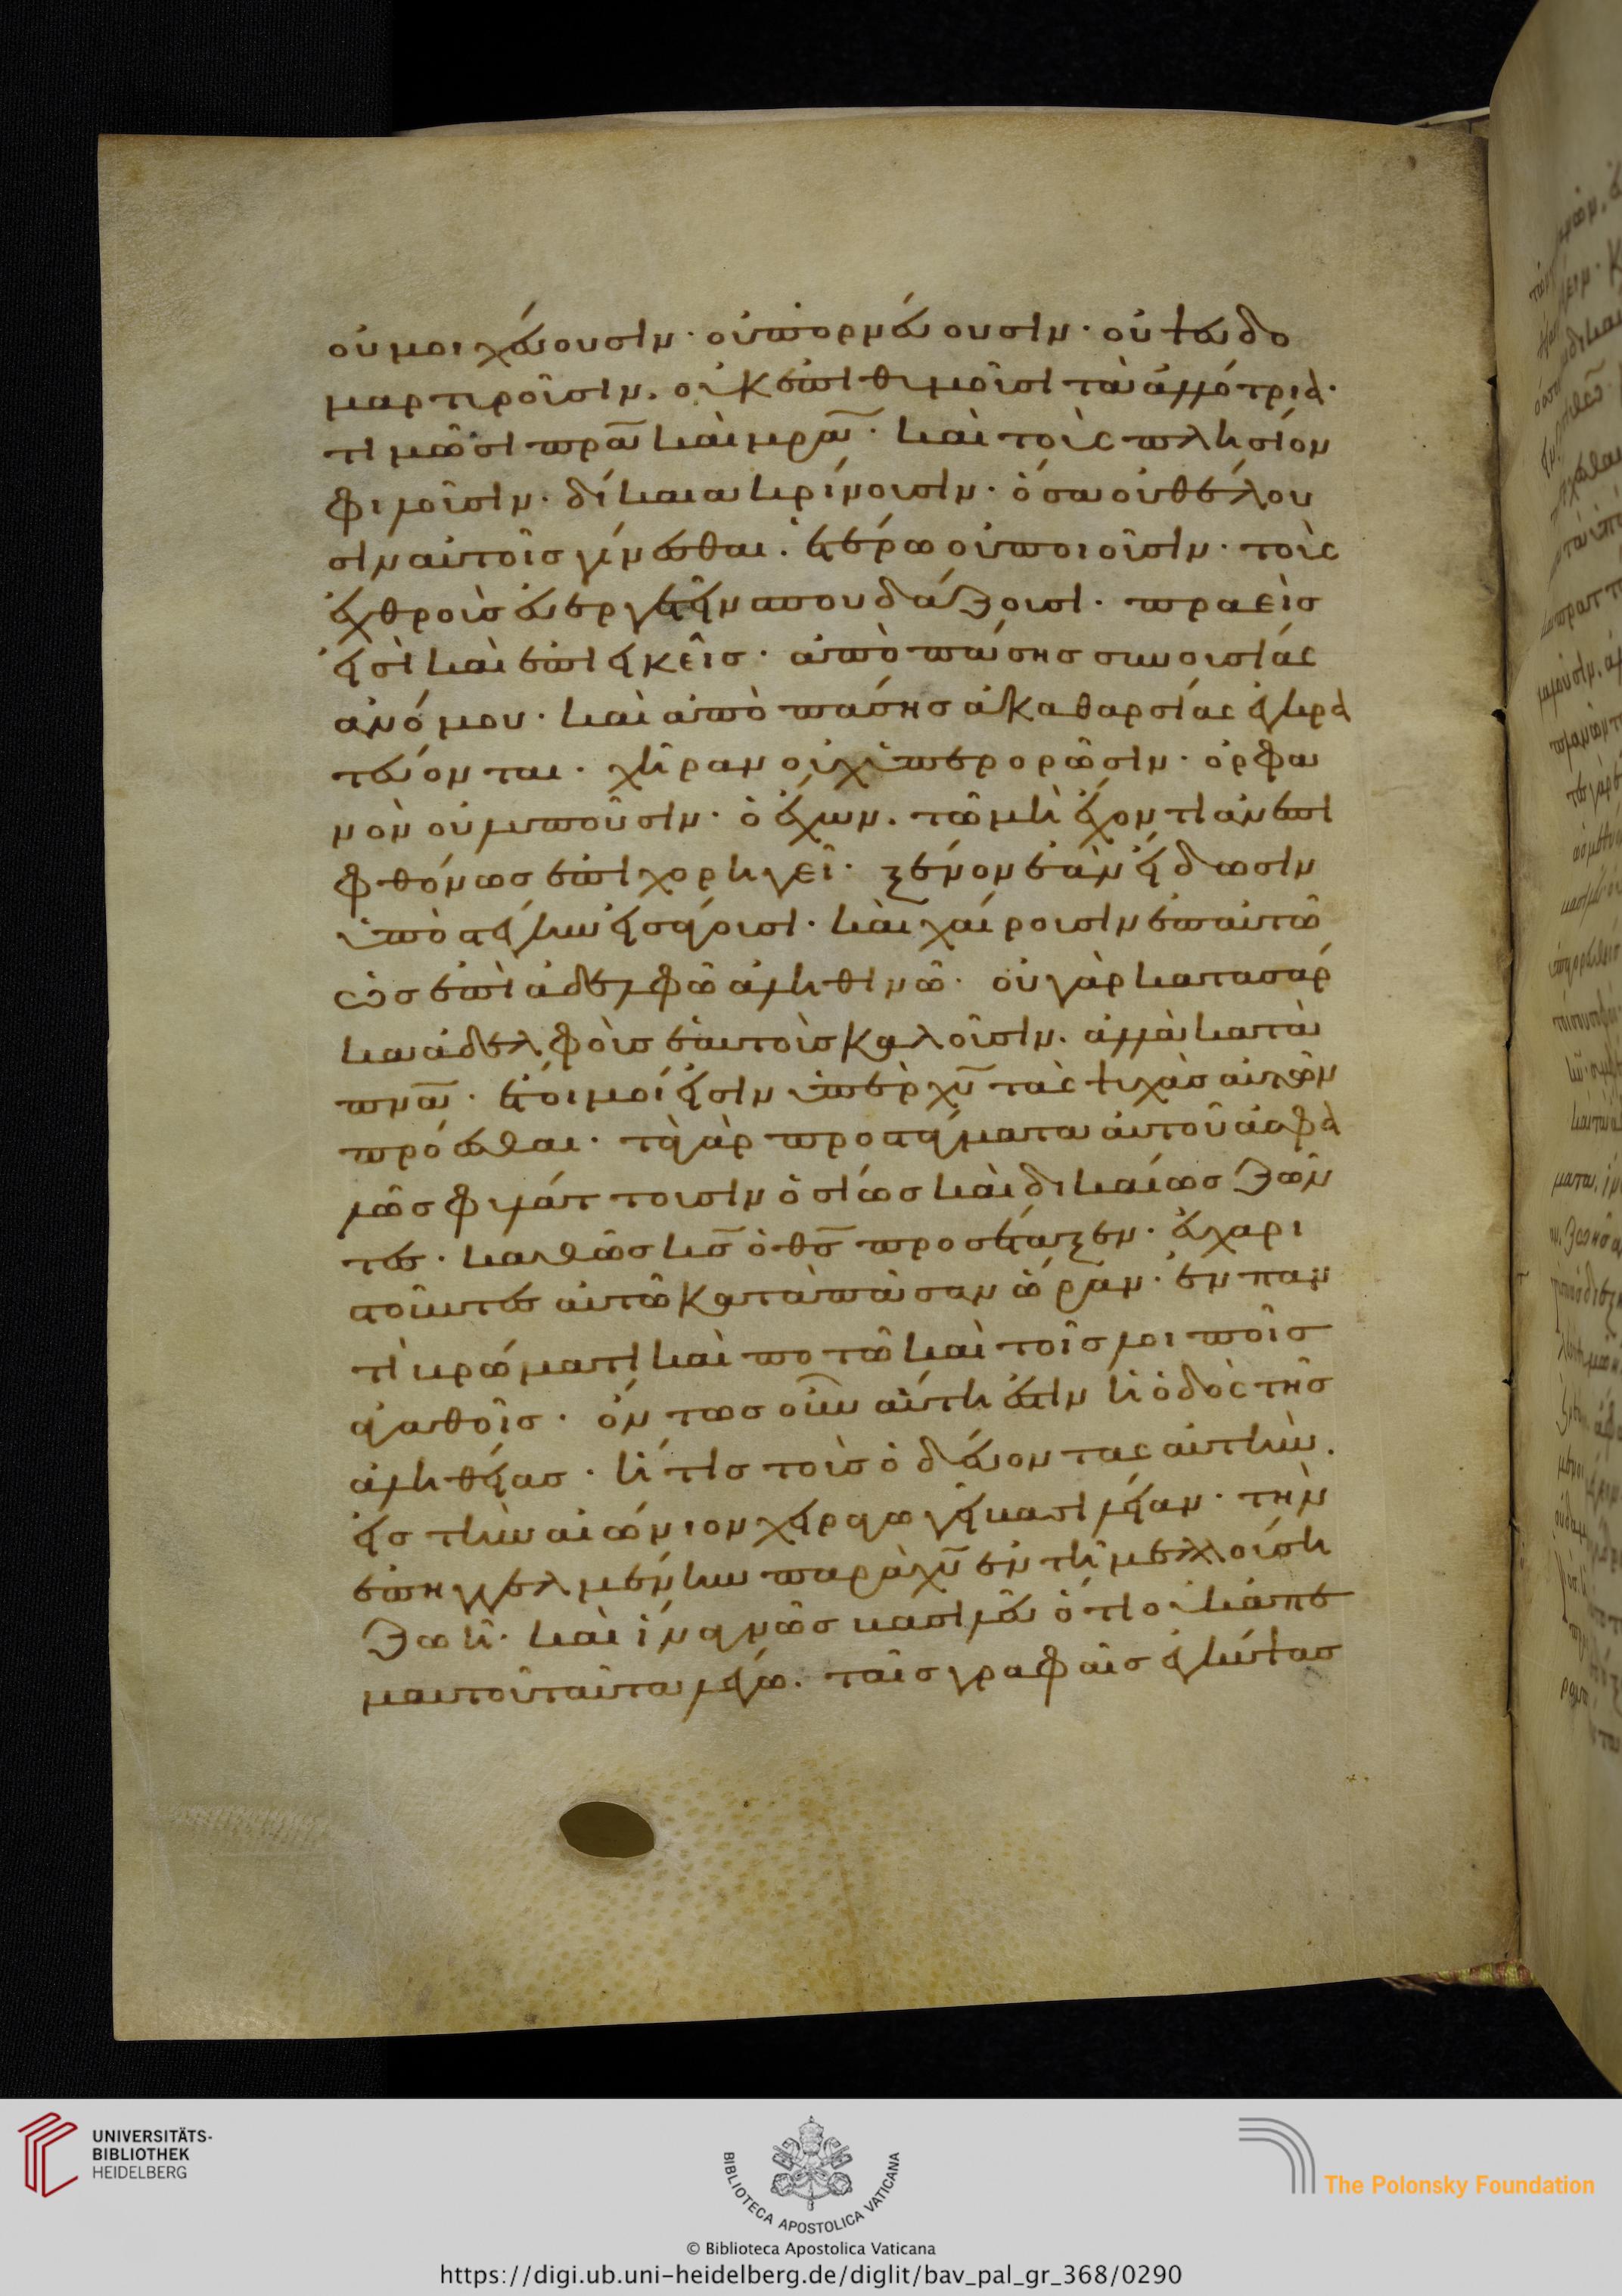 οὐ μοιχεύουσιν· οὐ πορνεύουσιν· οὐ ψευδο
μαρτυροῦσιν. οὐκ ἐπιθυμοῦσι τὰ ἀλλότρια·
τιμῶσι πρ̅α̅ καὶ μρ̅α̅· καὶ τοὺς πλησίον
φιλοῦσιν· δίκαια κρίνουσιν· ὅσα οὐ θέλου
σιν αὐτοῖς γίνεσθαι. ἑτέρω οὐ ποιοῦσιν· τοὺς
ἐχθροὺς εὐεργετεῖν σπουδάζουσι· πραεῖς
εἰσὶ καὶ ἐπιεικεῖς· ἀπὸ πάσης συνουσίας
ἀνόμου· καὶ ἀπὸ πάσης ἀκαθαρσίας ἐγκρα
τεύονται. χήραν οὐχ ὑπερορῶσιν· ὀρφα
νὸν οὐ λυποῦσιν· ὁ ἔχων. τῶ μὴ ἔχοντι ἀνεπι
φθόνως ἐπιχορηγεῖ· ξένον ἐὰν εἴδωσιν
ὑπὸ στέγην εἰσάγουσι· καὶ χαίρουσιν ἐπ αὐτῶ
ὡς ἐπὶ ἀδελφῶ ἀληθινῶ· οὐ γὰρ κατα σάρ
κα ἀδελφοὺς ἑαυτοὺς καλοῦσιν. ἀλλὰ κατὰ
πν̅α̅· ἕτοιμοί εἰσιν ὑπὲρ χ̅υ̅ τὰς ψυχὰς αὐτῶν
προέσθαι· τὰ γὰρ προστάγματα αὐτοῦ ἀσφα
λῶς φυλάττουσιν ὁσίως καὶ δικαίως ζῶν
τες· καθὼς κ̅ς̅ ὁ θ̅ς̅ προσέταξεν· εὐχαρι
στοῦντες αὐτῶ κατὰ πᾶσαν ὥραν· ἐν παν
τὶ βρώματι καὶ ποτῶ καὶ τοῖς λοιποῖς
ἀγαθοῖς· ὄντως οὖν αὕτη ἐστὶν ἡ ὁδὸς τῆς
ἀληθείας· ἥτις τοὺς ὁδεύοντας αὐτὴν.
εἰς τὴν αἰώνιον χειραγωγεῖ βασιλείαν· τὴν
ἐπηγγελμένην παρὰ χ̅υ̅ ἐν τῆ μελλούση
ζωῆ· καὶ ἵνα γνῶς βασιλεῦ ὅτι οὐκ ἀπ ἐ
μαυτοῦ ταῦτα λέγω. ταῖς γραφαῖς ἐγκύψας
UNIVERSITÄTS-
BIBLIOTHEK
HEIDELBERG
BIBLIOTECA APOSTOLICA VATICANA
The Polonsky Foundation
© Biblioteca Apostolica Vaticana
https://digi.ub.uni-heidelberg.de/diglit/bav_pal_gr_368/0290